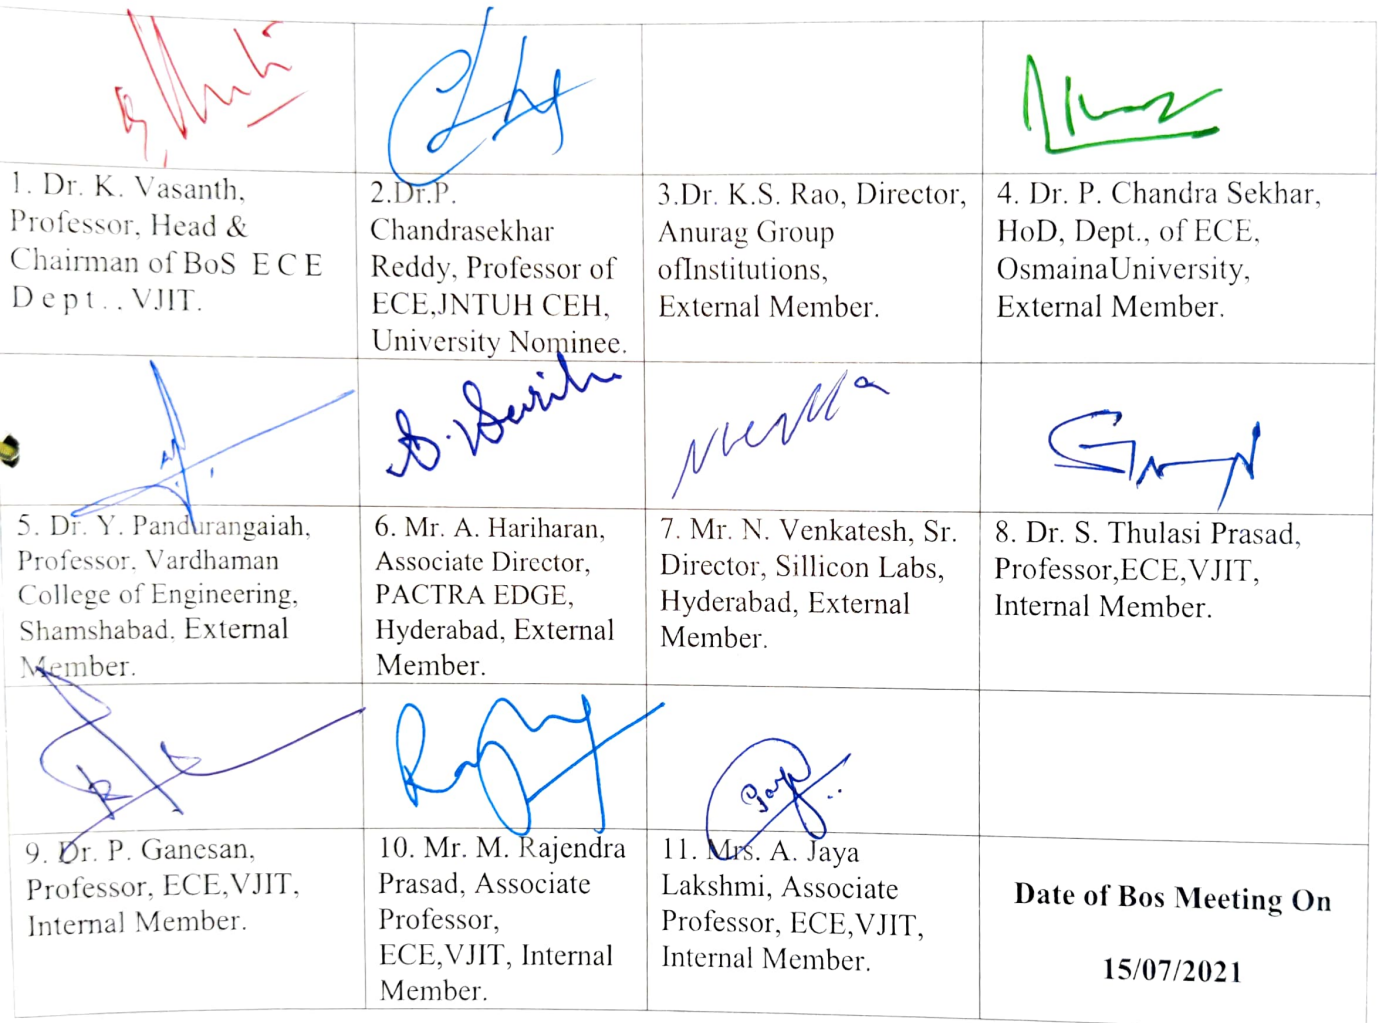 1. Dr. K. Vasanth,
Professor, Head &
Chairman of BoS E C E
D e p t . . VJIT.
2.Dr.P.
Chandrasekhar
Reddy, Professor of
ECE,JNTUH CEH,
University Nominee.
3.Dr. K.S. Rao, Director,
Anurag Group
ofInstitutions,
External Member.
4. Dr. P. Chandra Sekhar,
HoD, Dept., of ECE,
OsmainaUniversity,
External Member.
5. Dr. Y. Pandurangaiah,
Professor. Vardhaman
College of Engineering,
Shamshabad. External
Member.
6. Mr. A. Hariharan,
Associate Director,
PACTRA EDGE,
Hyderabad, External
Member.
7. Mr. N. Venkatesh, Sr.
Director, Sillicon Labs,
Hyderabad, External
Member.
8. Dr. S. Thulasi Prasad,
Professor,ECE,VJIT,
Internal Member.
9. Dr. P. Ganesan,
Professor, ECE,VJIT,
Internal Member.
10. Mr. M. Rajendra
Prasad, Associate
Professor,
ECE,VJIT, Internal
Member.
11. Mrs. A. Jaya
Lakshmi, Associate
Professor, ECE,VJIT,
Internal Member.
Date of Bos Meeting On
15/07/2021